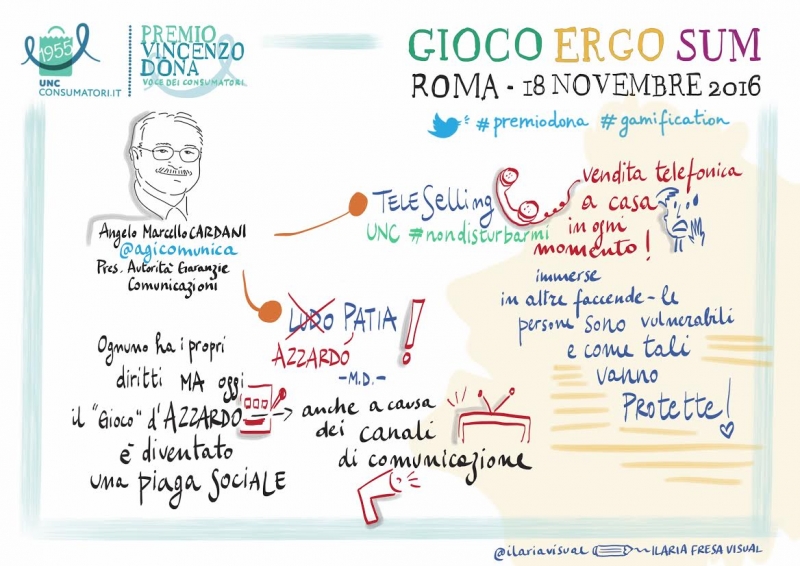 1955
UNC
CONSUMATORI.IT
PREMIO
VINCENZO
DONA
VOCE DEI CONSUMATORI
GIOCO ERGO SUM
ROMA - 18 NOVEMBRE 2016
#premiodona #gamification
Angelo Marcello CARDANI
@agicomunica
Pres. Autorità Garanzie
Comunicazioni
TELESelling
UNC #nondisturbarmi
vendita telefonica
a casa
in ogni
momento!
immerse
in altre faccende - le
persone sono vulnerabili
e come tali
vanno
PROTETTE!
LUDO PATIA
AZZARDO
!
- M.D. -
Ognuno ha i propri
diritti MA oggi
il "Gioco" d'AZZARDO
è diventato
una piaga SOCIALE
anche a causa
dei canali
di comunicazione
@ilariavisual ILARIA FRESA VISUAL